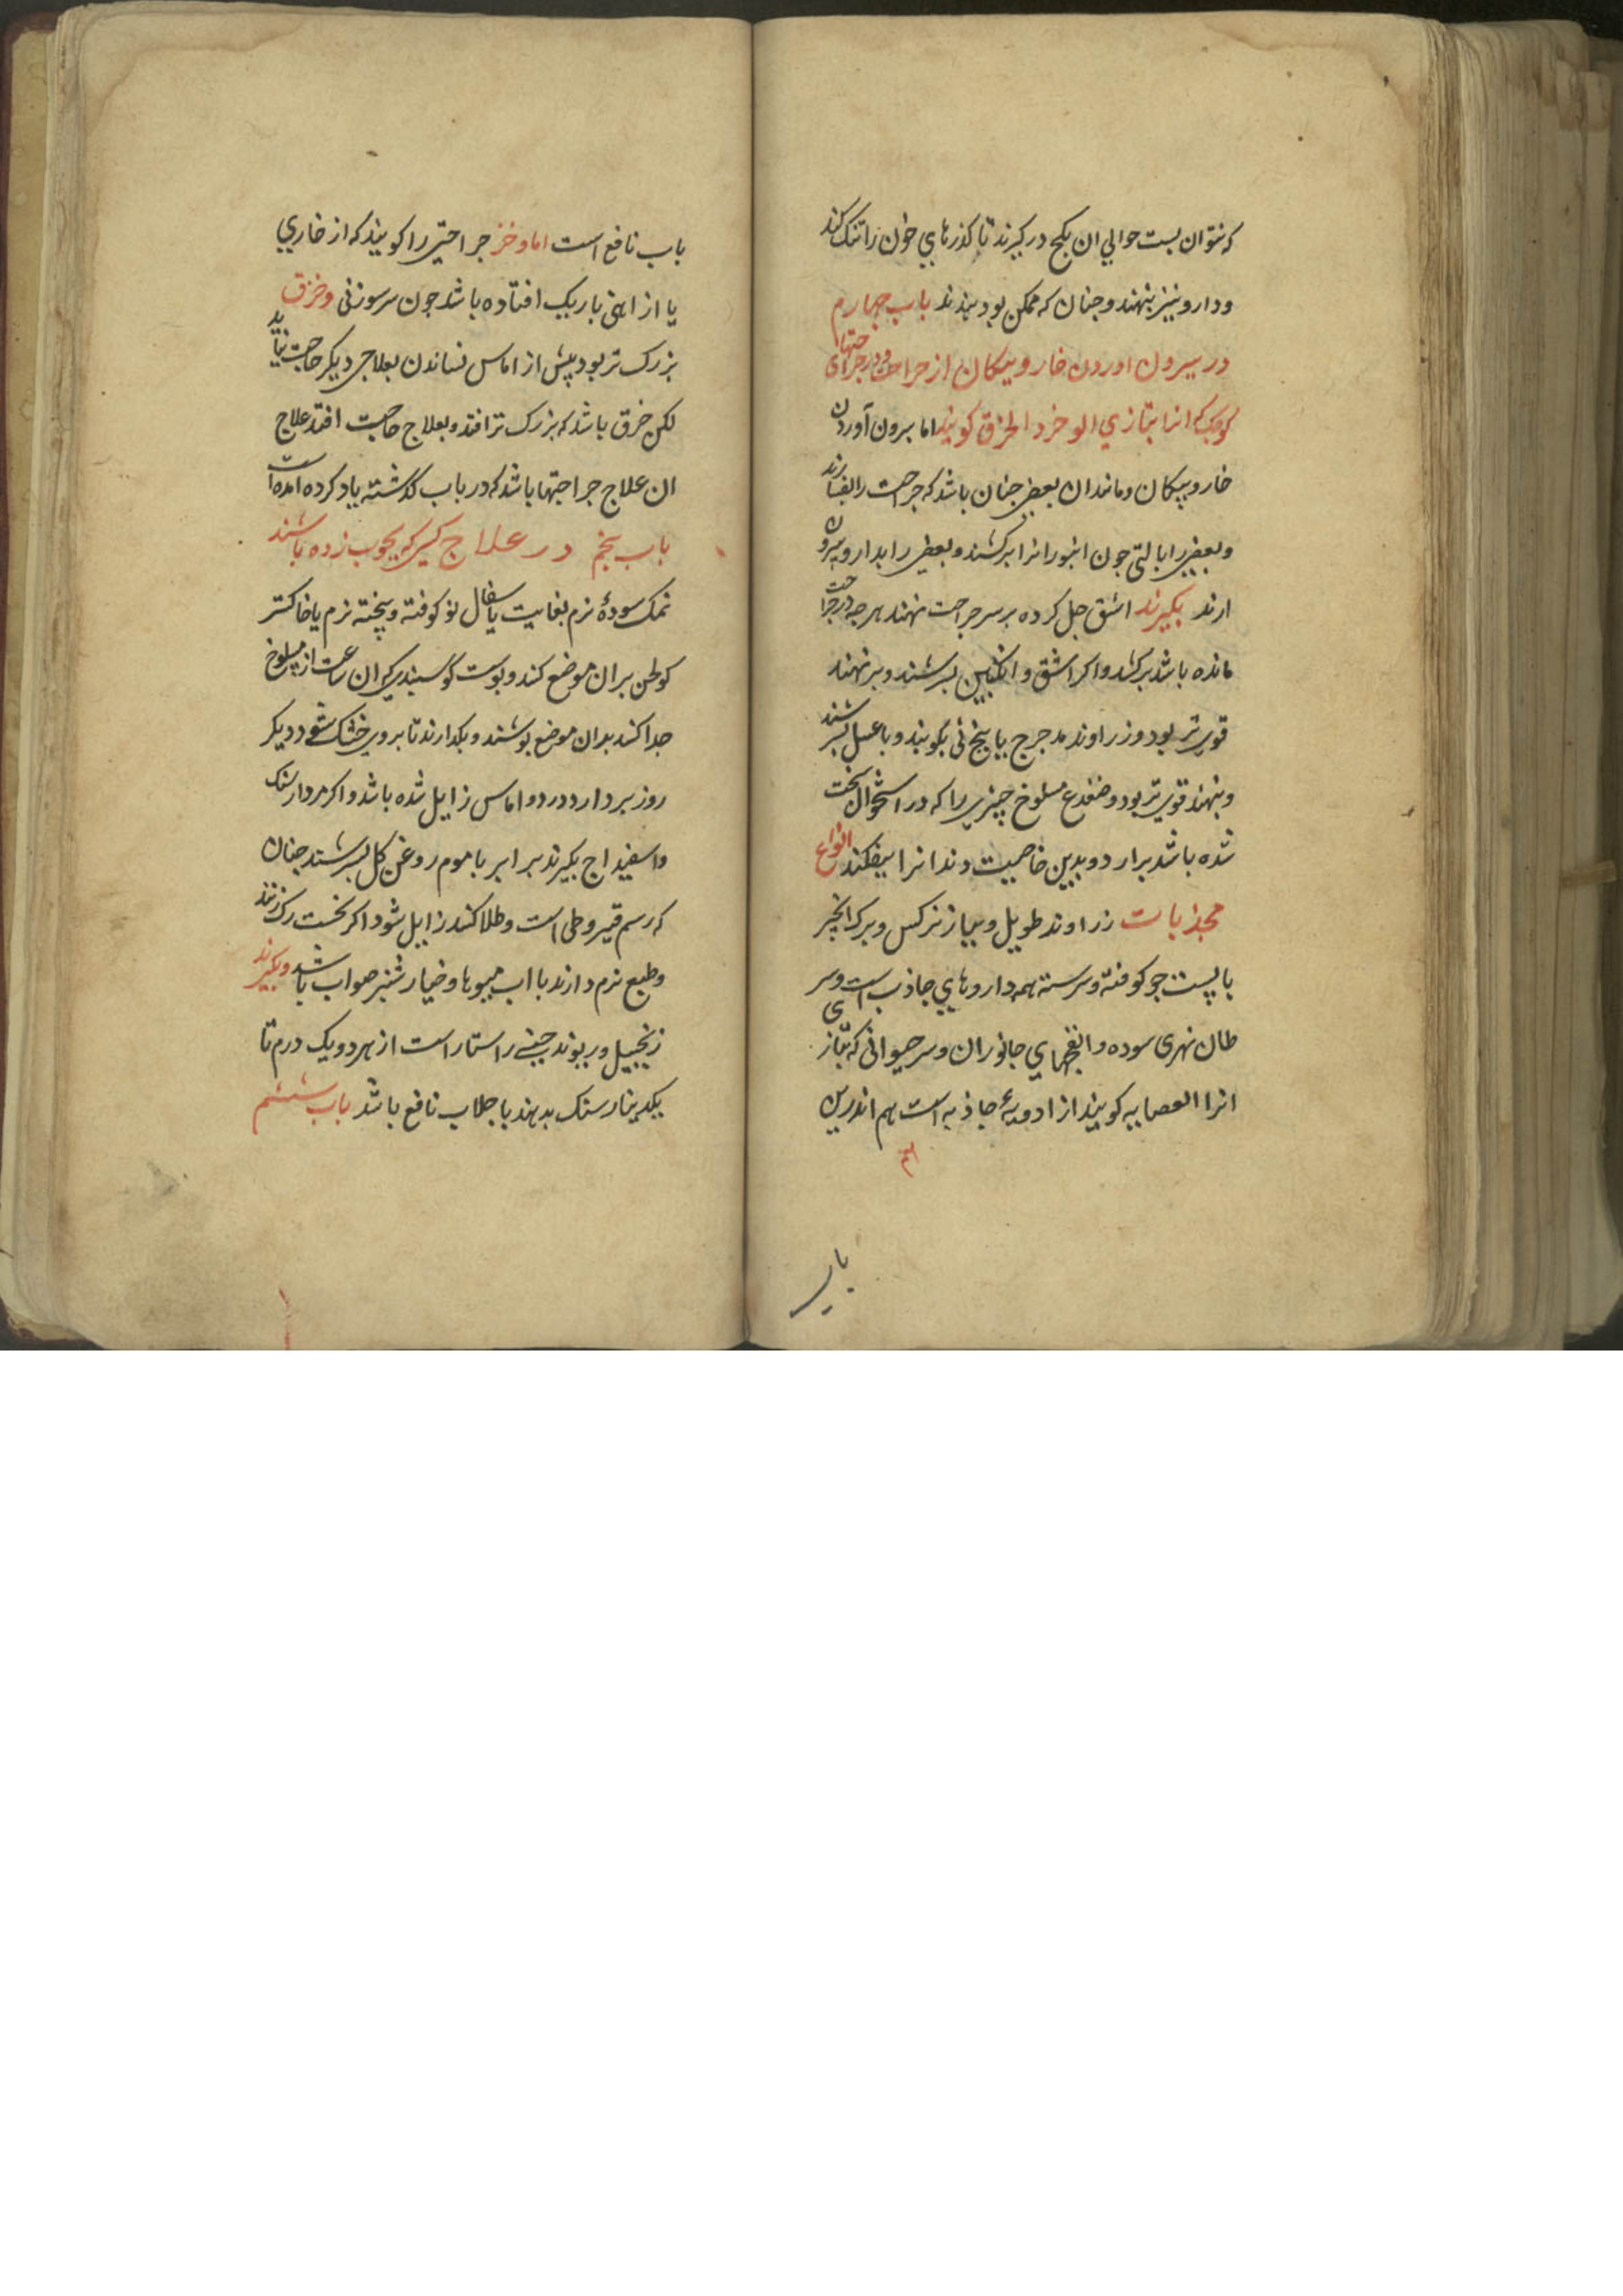 که نتوان بست حوالی ان بکج در کیرند تا کذرهای خون را تنک کند
ودارو نیز بنهند وجنان که ممکن بود ببندند باب جهارم
در بیرون اوردن خار وپیکان از جراحت ودر جراحتهای
کوچک که انرا بتازی الوخز والخزق کویند اما بیرون آوردن
خار وپیکان ومانند ان بعضی جنان باشد که جراحت را بفشارند
وبعضی را بالتی جون انبور انرا برکشند وبعضی را بدارو بیرون
ارند بکیرند اشق حل کرده بر سر جراحت نهند هرجه در جراحت
مانده باشد برکشد واکر اشق وانکبین بسرشند وبر نهند
قوی تر بود وزراوند مدحرج یا بیخ نی بکوبند وبا عسل بسرشند
وبنهند قوی تر بود وضفدع مسلوخ چیزی را که در استخوان سخت
شده باشد برارد وبدین خاصیت دندانرا بیفکند انواع
مجذبات زراوند طویل وپیاز نرکس وبرک انجیر
با پست جو کوفته وسرسته همه داروهای جاذب است وسر
طان نهری سوده وانفحهای جانوران وسر حیوانی که بتازی
انرا العصایه کویند از ادویهٔ جاذبه است هم اندرین
باب
باب نافع است اما وخز جراحتی را کویند که از خاری
یا از اهنی باریک افتاده باشد جون سر سوزنی وخزق
بزرک تر بود پیش از اماس نساندن بعلاجی دیکر حاجت نیاید
لکن خزق باشد که بزرک تر افتد وبعلاج حاجت افتد علاج
ان علاج جراحتها باشد که در باب کذشته یاد کرده امده است
باب پنجم در علاج کسی که بچوب زده باشند
نمک سودهٔ نرم بغایت یا سفال نو کوفته وپخته نرم یا خاکستر
کولخن بر ان موضع کند وپوست کوسبندی که ان ساعت از مسلوخ
جدا کنند بدان موضع پوشند وبکدارند تا بر وی خشک شود ودیکر
روز بردارد درد واماس زایل شده باشد واکر مردار سنک
واسفیداج بکیرند برابر با موم روغن کل بسرشند جنان
که رسم قیروطی است وطلا کنند زایل شود اکر نخست رک زنند
وطبع نرم دارند با اب میوها وخیار شنبر صواب باشد وبکیرند
زنجبیل وریوند چینی راستا راست از هر دو یک درم تا
یکدینار سنک بدهند با جلاب نافع باشد باب ششم